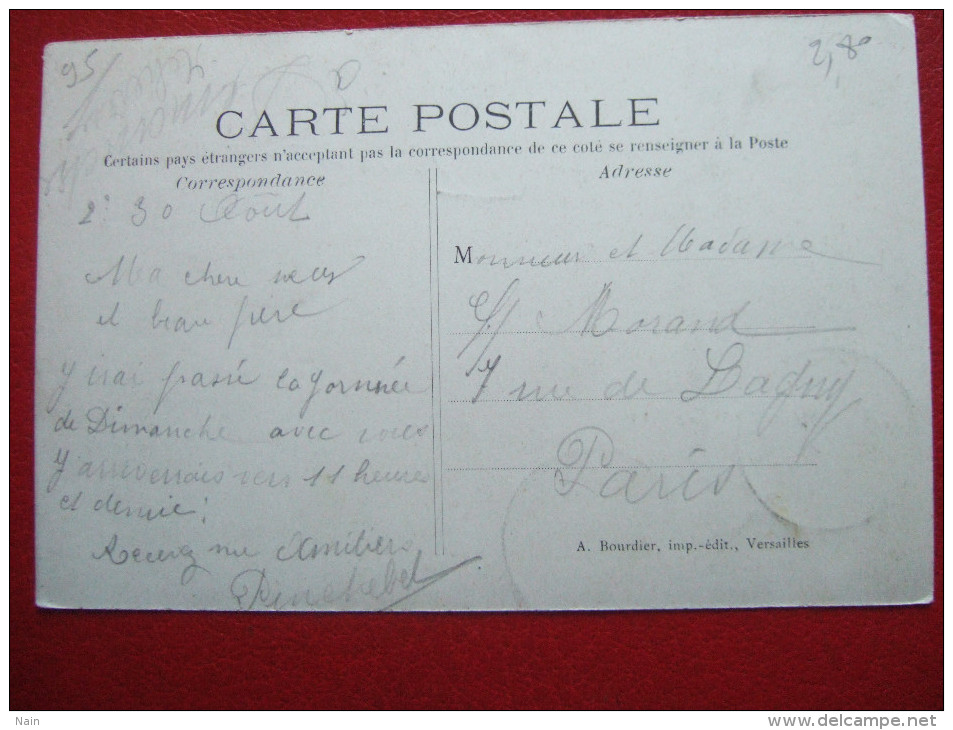 95
2,80
CARTE POSTALE
Certains pays étrangers n'acceptant pas la correspondance de ce coté se renseigner à la Poste
Correspondance
Adresse
30 Août
Ma chere
et beau pere
Y irai passé la Journée
de Dimanche avec vous
Y arriverais vers 11 heures
et demie
Recevez me Amitiers
Monsieur et Madame
Morand
rue de Lagny
Paris
A. Bourdier, imp.-édit., Versailles
Nain
www.delcampe.net